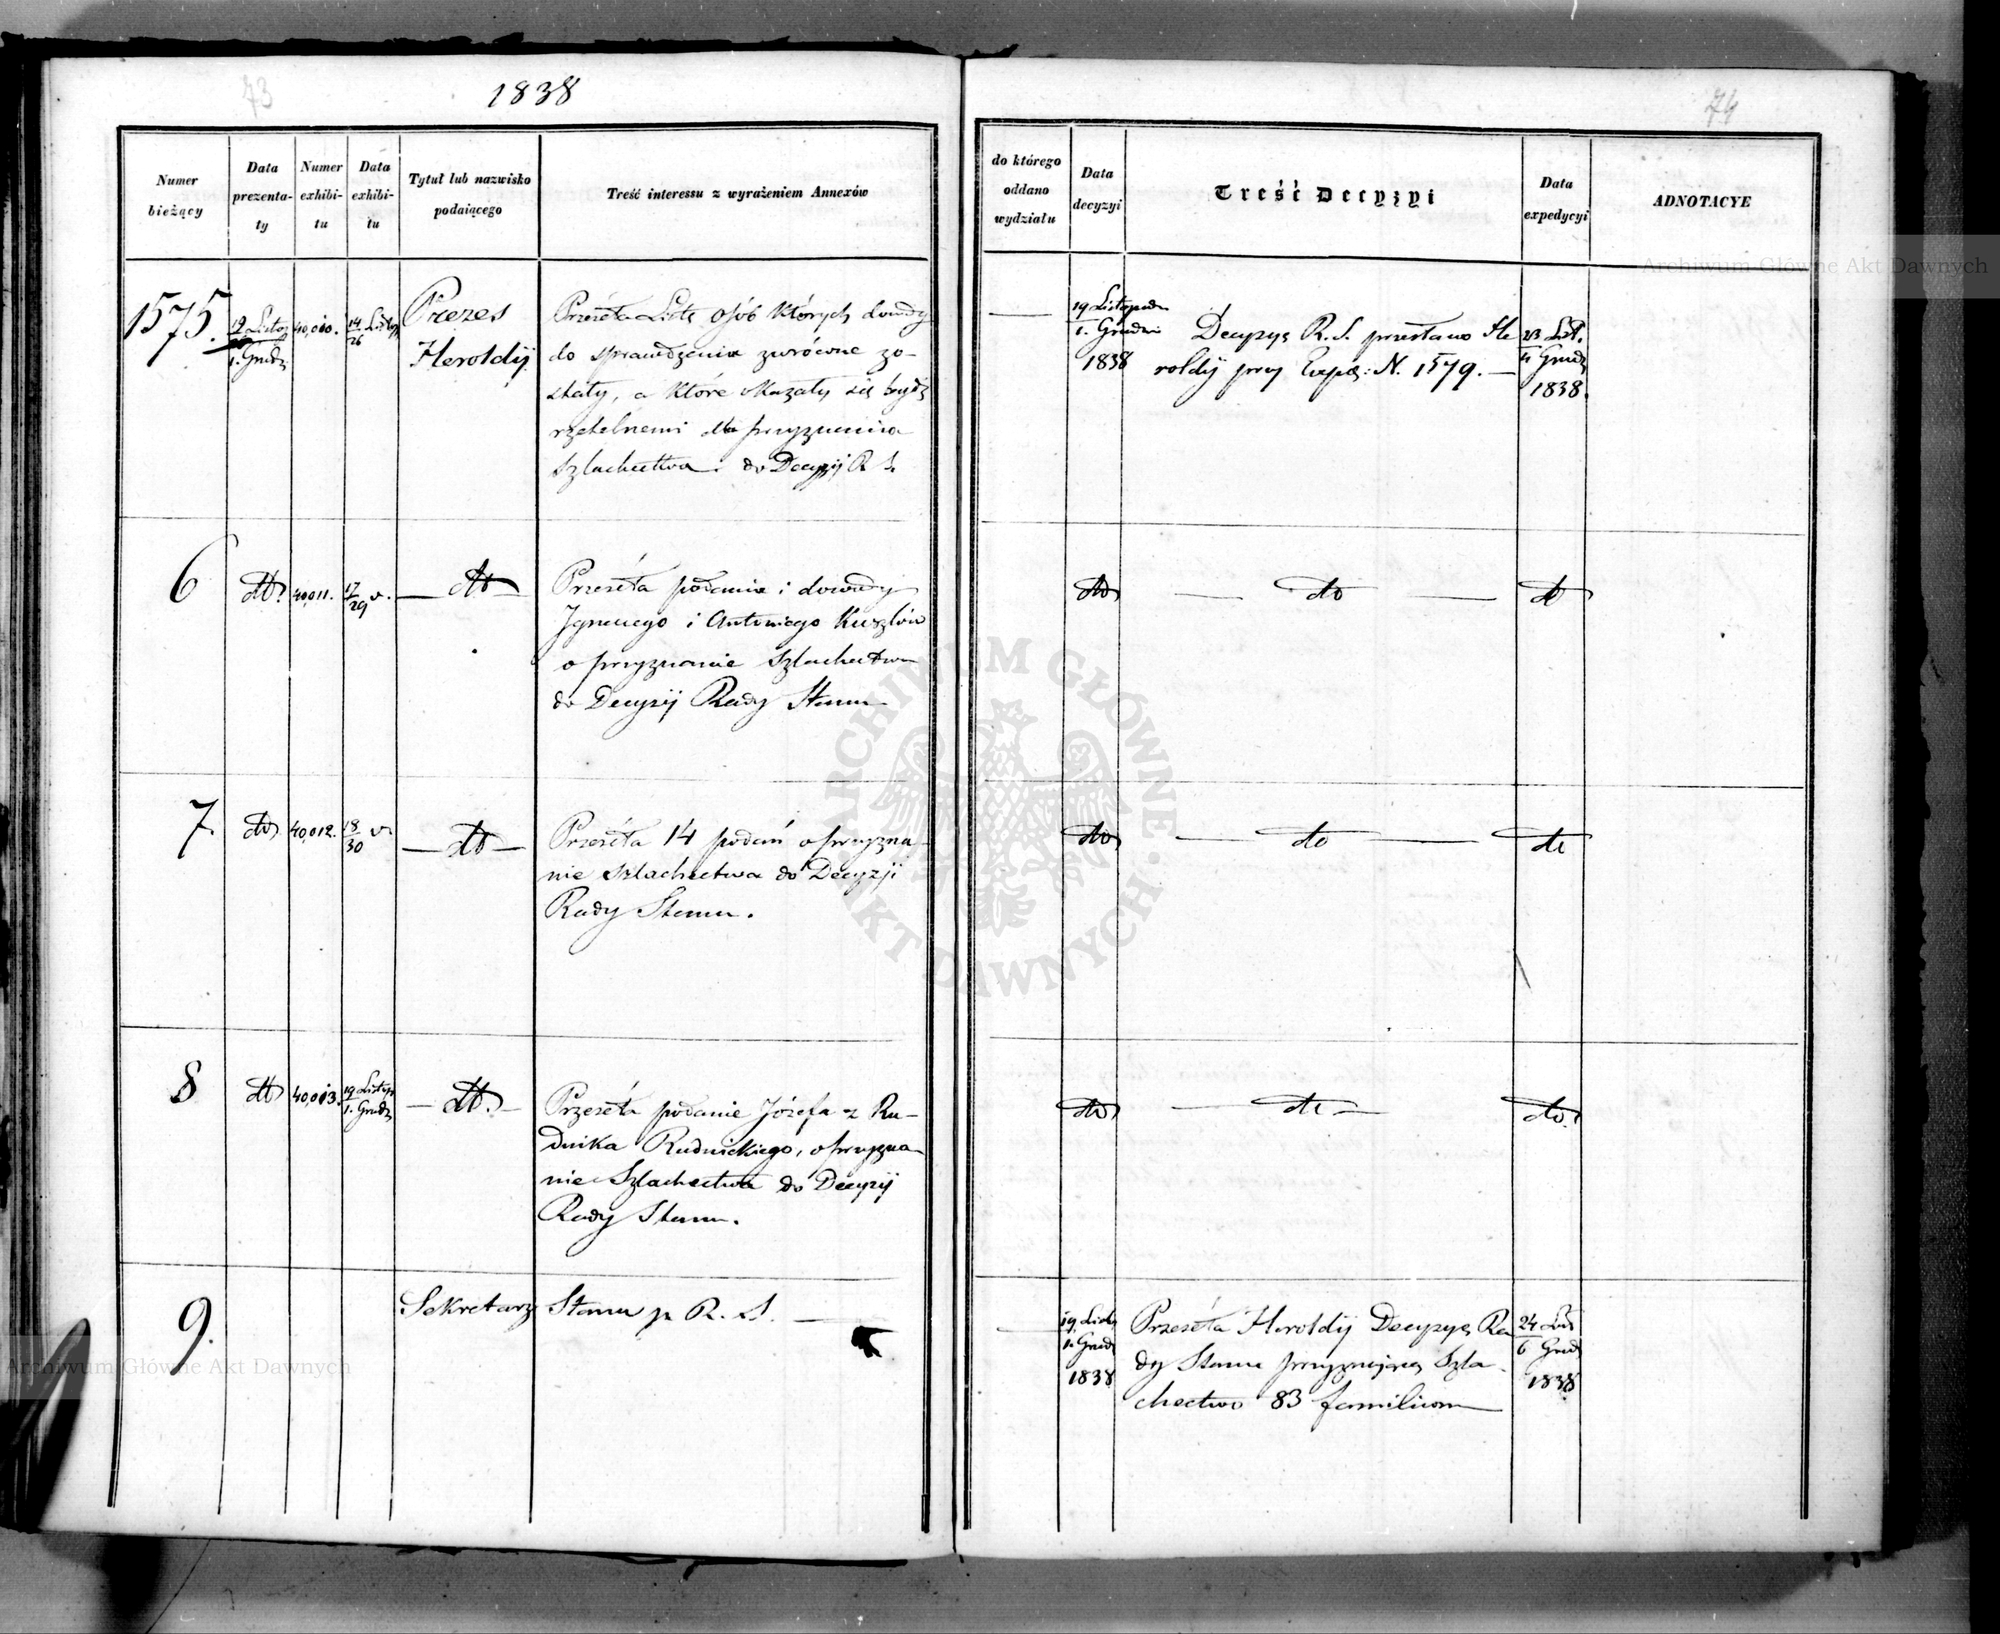 73
1838
Numer bieżący
Data prezenta-ty
Numer exhibi-tu
Data exhibi-tu
Tytuł lub nazwisko podaiącego
Treść interessu z wyrażeniem Annexów
1575.
19 Listop
1. Grudz
40,010.
14 Listop
26
Prezes
Heroldij
Przeséła Listę osób których dowody
do sprawdzenia zwrócone zo-
stały, a które okazały się bydź
rzetelnemi dla przyznania
Szlachectwa. do Decyzij R S.
6
dto.
40,011.
17
29 v.
— dto —
Przeséła podania i dowody
Ignacego i Antoniego
o przyznanie Szlachectwa
do Decyzij Rady Stanu
7.
dto
40,012.
18 v.
30
— dto —
Przeséła 14 podań o przyzna-
nie szlachectwa do Decyzji
Rady Stanu.
8
dto
40,013.
19 Listop
1. Grudz
— dto. —
Przeséła podanie Józefa z Ru-
dnika Rudnickiego, o przyzna-
nie Szlachectwa do Decyzij
Rady Stanu.
9.
Sekretarz Stanu p R. S. —
74
do którego oddano wydziału
Data decyzyi
Treść Decyzyi
Data expedycyi
ADNOTACYE
—
19 Listopada
1. Grudnia
1838
Decyzyę R. S. przesłano He
roldij przy Exped: N. 1579. —
23 List.
4 Grudz
1838.
dto
— dto —
dto
dto
— dto —
dto
dto
— dto —
dto.
—
19. List
1. Grudz
1838
Przeséła Heroldij Decyzyę Ra
dy Stanu przyznającą Szla-
chectwo 83 familiom
24 List
6 Grud
1838
Archiwum Główne Akt Dawnych
ARCHIWUM GŁÓWNE AKT DAWNYCH
Archiwum Główne Akt Dawnych